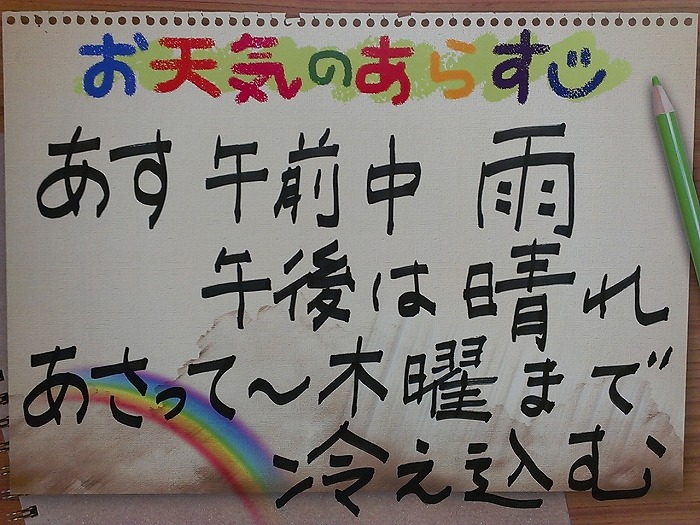 お天気のあらすじ
あす 午前中 雨
午後は晴れ
あさって〜木曜まで
冷え込む